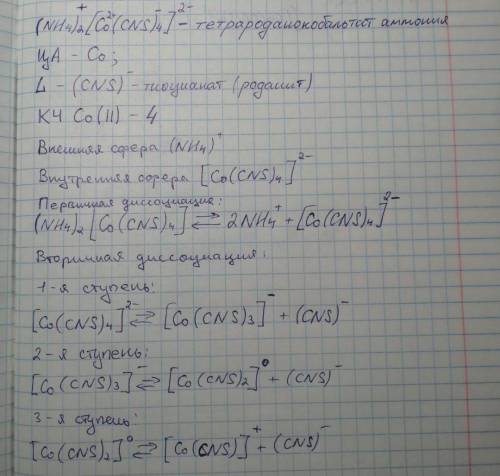 (NH₄)₂⁺[Co²⁺(CNS)₄⁻]²⁻ – тетрароданокобальтат аммония
ЦА – Co;
L – (CNS)⁻ – тиоцианат (роданит)
КЧ Co(II) – 4
Внешняя сфера (NH₄)⁺
Внутренняя сфера [Co(CNS)₄]²⁻
Первичная диссоциация:
(NH₄)₂[Co(CNS)₄] ⇄ 2NH₄⁺ + [Co(CNS)₄]²⁻
Вторичная диссоциация:
1-я ступень:
[Co(CNS)₄]²⁻ ⇄ [Co(CNS)₃]⁻ + (CNS)⁻
2-я ступень:
[Co(CNS)₃]⁻ ⇄ [Co(CNS)₂]⁰ + (CNS)⁻
3-я ступень:
[Co(CNS)₂]⁰ ⇄ [Co(CNS)]⁺ + (CNS)⁻